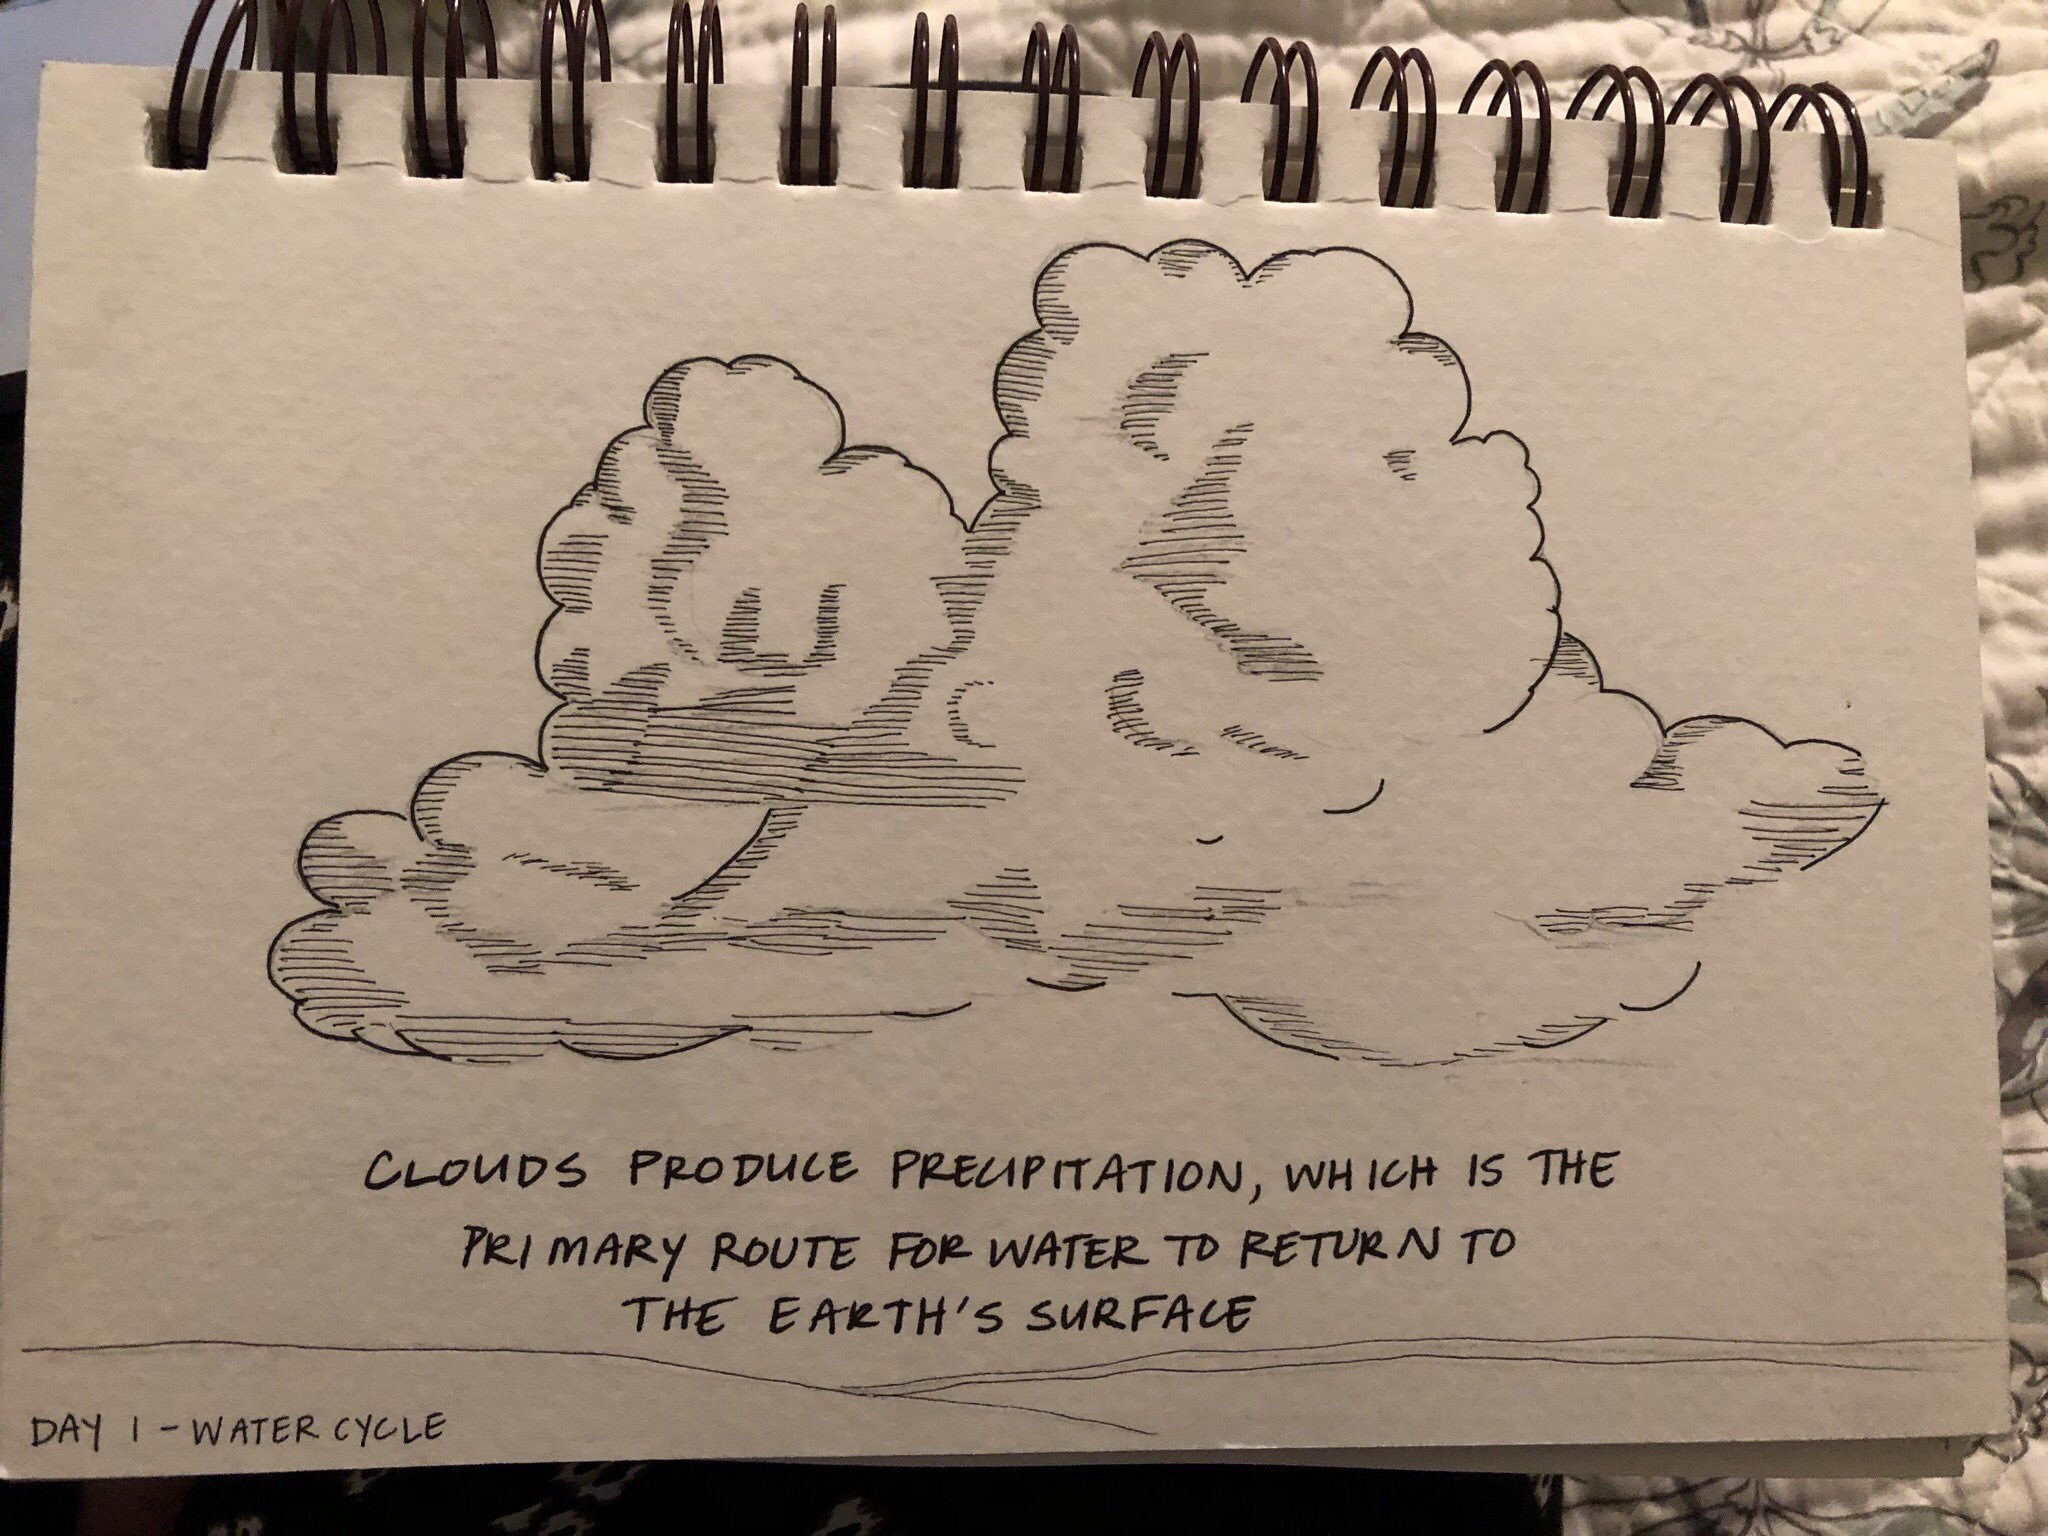 CLOUDS PRODUCE PRECIPITATION, WHICH IS THE
PRIMARY ROUTE FOR WATER TO RETURN TO
THE EARTH'S SURFACE
DAY 1 - WATER CYCLE